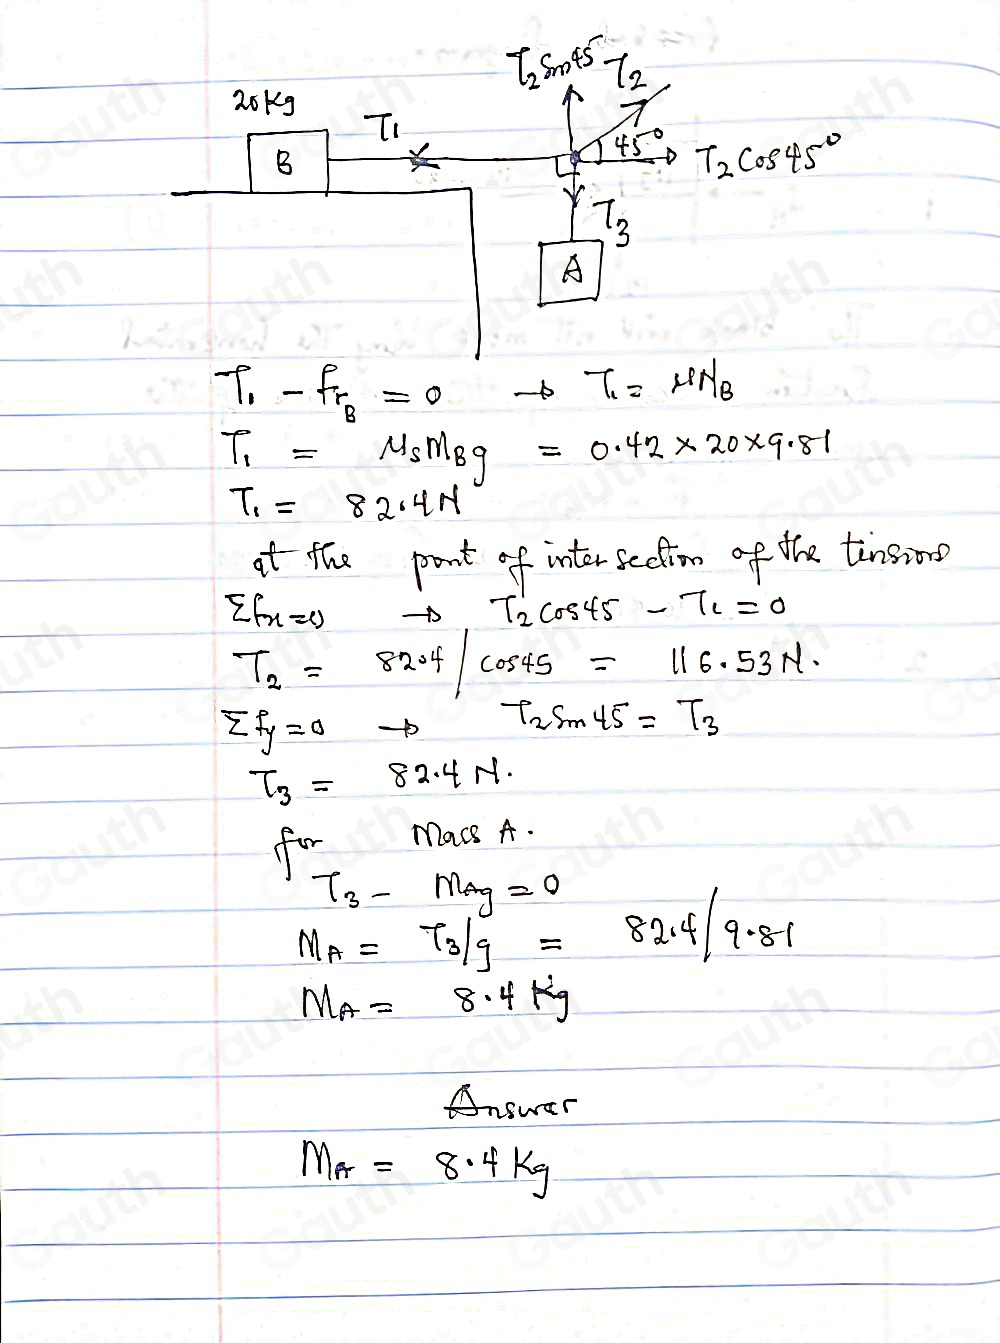 T₂Sin45 T₂
20Kg
T₁
B
45°
T₂Cos45°
T₃
A
T₁ - frB = 0 → T₁ = μNB
T₁ = μsMBg = 0.42 × 20 × 9.81
T₁ = 82.4N
at the point of intersection of the tensions
Σfx=0 → T₂Cos45 - T₁ = 0
T₂ = 82.4/cos45 = 116.53N.
Σfy=0 → T₂Sin45 = T₃
T₃ = 82.4 N.
for Mass A.
T₃ - MAg = 0
MA = T₃/g = 82.4/9.81
MA = 8.4 Kg
Answer
MA = 8.4 Kg